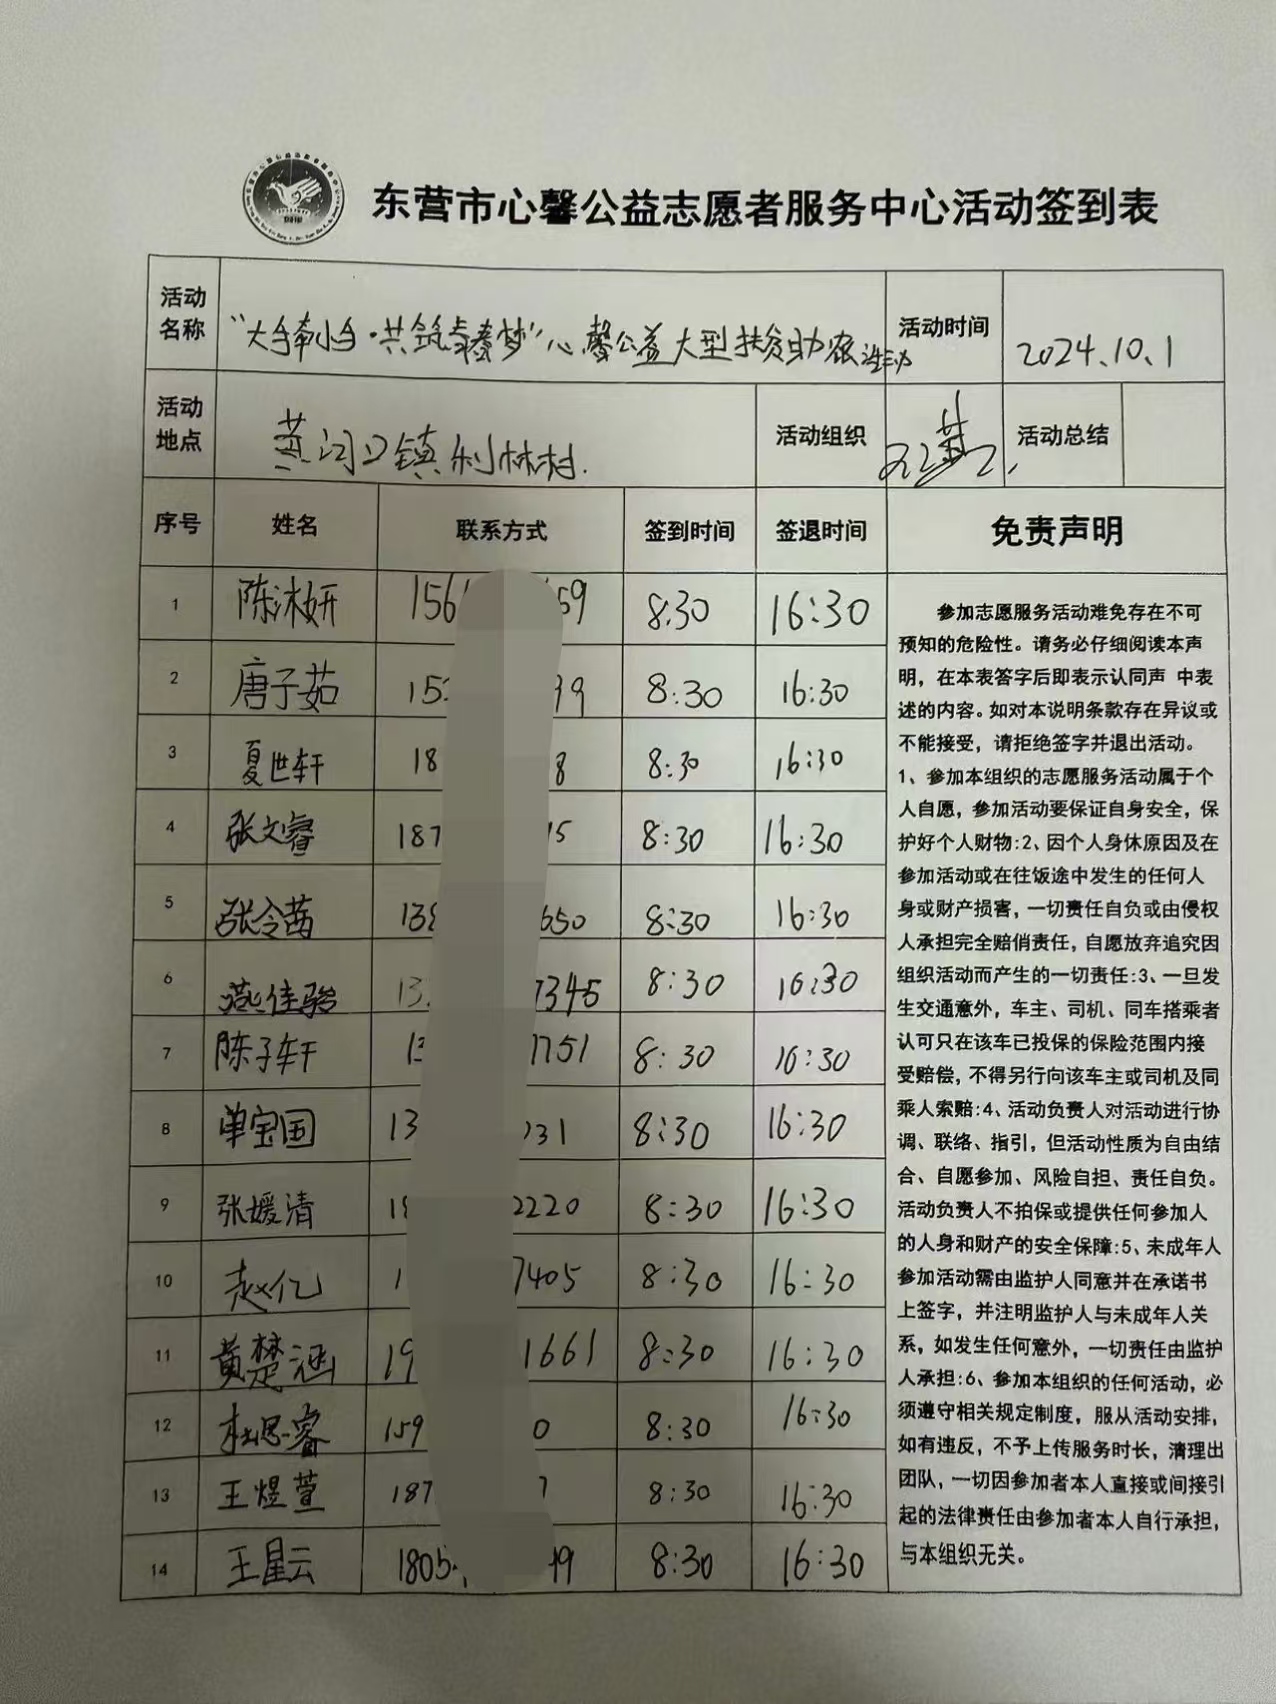 东营市心馨公益志愿者服务中心活动签到表
活动名称 "大手牵小手·共筑青春梦"心馨公益大型扶贫助农活动 活动时间 2024.10.1
活动地点 黄河口镇利林村. 活动组织 活动总结
序号 姓名 联系方式 签到时间 签退时间 免责声明
1 陈沐妍 156 59 8:30 16:30
2 唐子茹 15 99 8:30 16:30
3 夏世轩 18 8 8:30 16:30
4 张文睿 187 15 8:30 16:30
5 张令茜 138 650 8:30 16:30
6 佳骏 13 7345 8:30 16:30
7 陈子轩 13 1751 8:30 16:30
8 单宝国 13 031 8:30 16:30
9 张媛清 18 2220 8:30 16:30
10 赵亿 1 7405 8:30 16:30
11 黄楚涵 19 1661 8:30 16:30
12 杜思睿 159 0 8:30 16:30
13 王煜萱 187 7 8:30 16:30
14 王星云 1805 49 8:30 16:30
参加志愿服务活动难免存在不可
预知的危险性。请务必仔细阅读本声
明，在本表答字后即表示认同声 中表
述的内容。如对本说明条款存在异议或
不能接受，请拒绝签字并退出活动。
1、参加本组织的志愿服务活动属于个
人自愿，参加活动要保证自身安全，保
护好个人财物:2、因个人身休原因及在
参加活动或在往饭途中发生的任何人
身或财产损害，一切责任自负或由侵权
人承担完全赔俏责任，自愿放弃追究因
组织活动而产生的一切责任:3、一旦发
生交通意外，车主、司机、同车搭乘者
认可只在该车已投保的保险范围内接
受赔偿，不得另行向该车主或司机及同
乘人索赔:4、活动负责人对活动进行协
调、联络、指引，但活动性质为自由结
合、自愿参加、风险自担、责任自负。
活动负责人不拍保或提供任何参加人
的人身和财产的安全保障:5、未成年人
参加活动需由监护人同意并在承诺书
上签字，并注明监护人与未成年人关
系，如发生任何意外，一切责任由监护
人承担:6、参加本组织的任何活动，必
须遵守相关规定制度，服从活动安排，
如有违反，不予上传服务时长，清理出
团队，一切因参加者本人直接或间接引
起的法律责任由参加者本人自行承担，
与本组织无关。